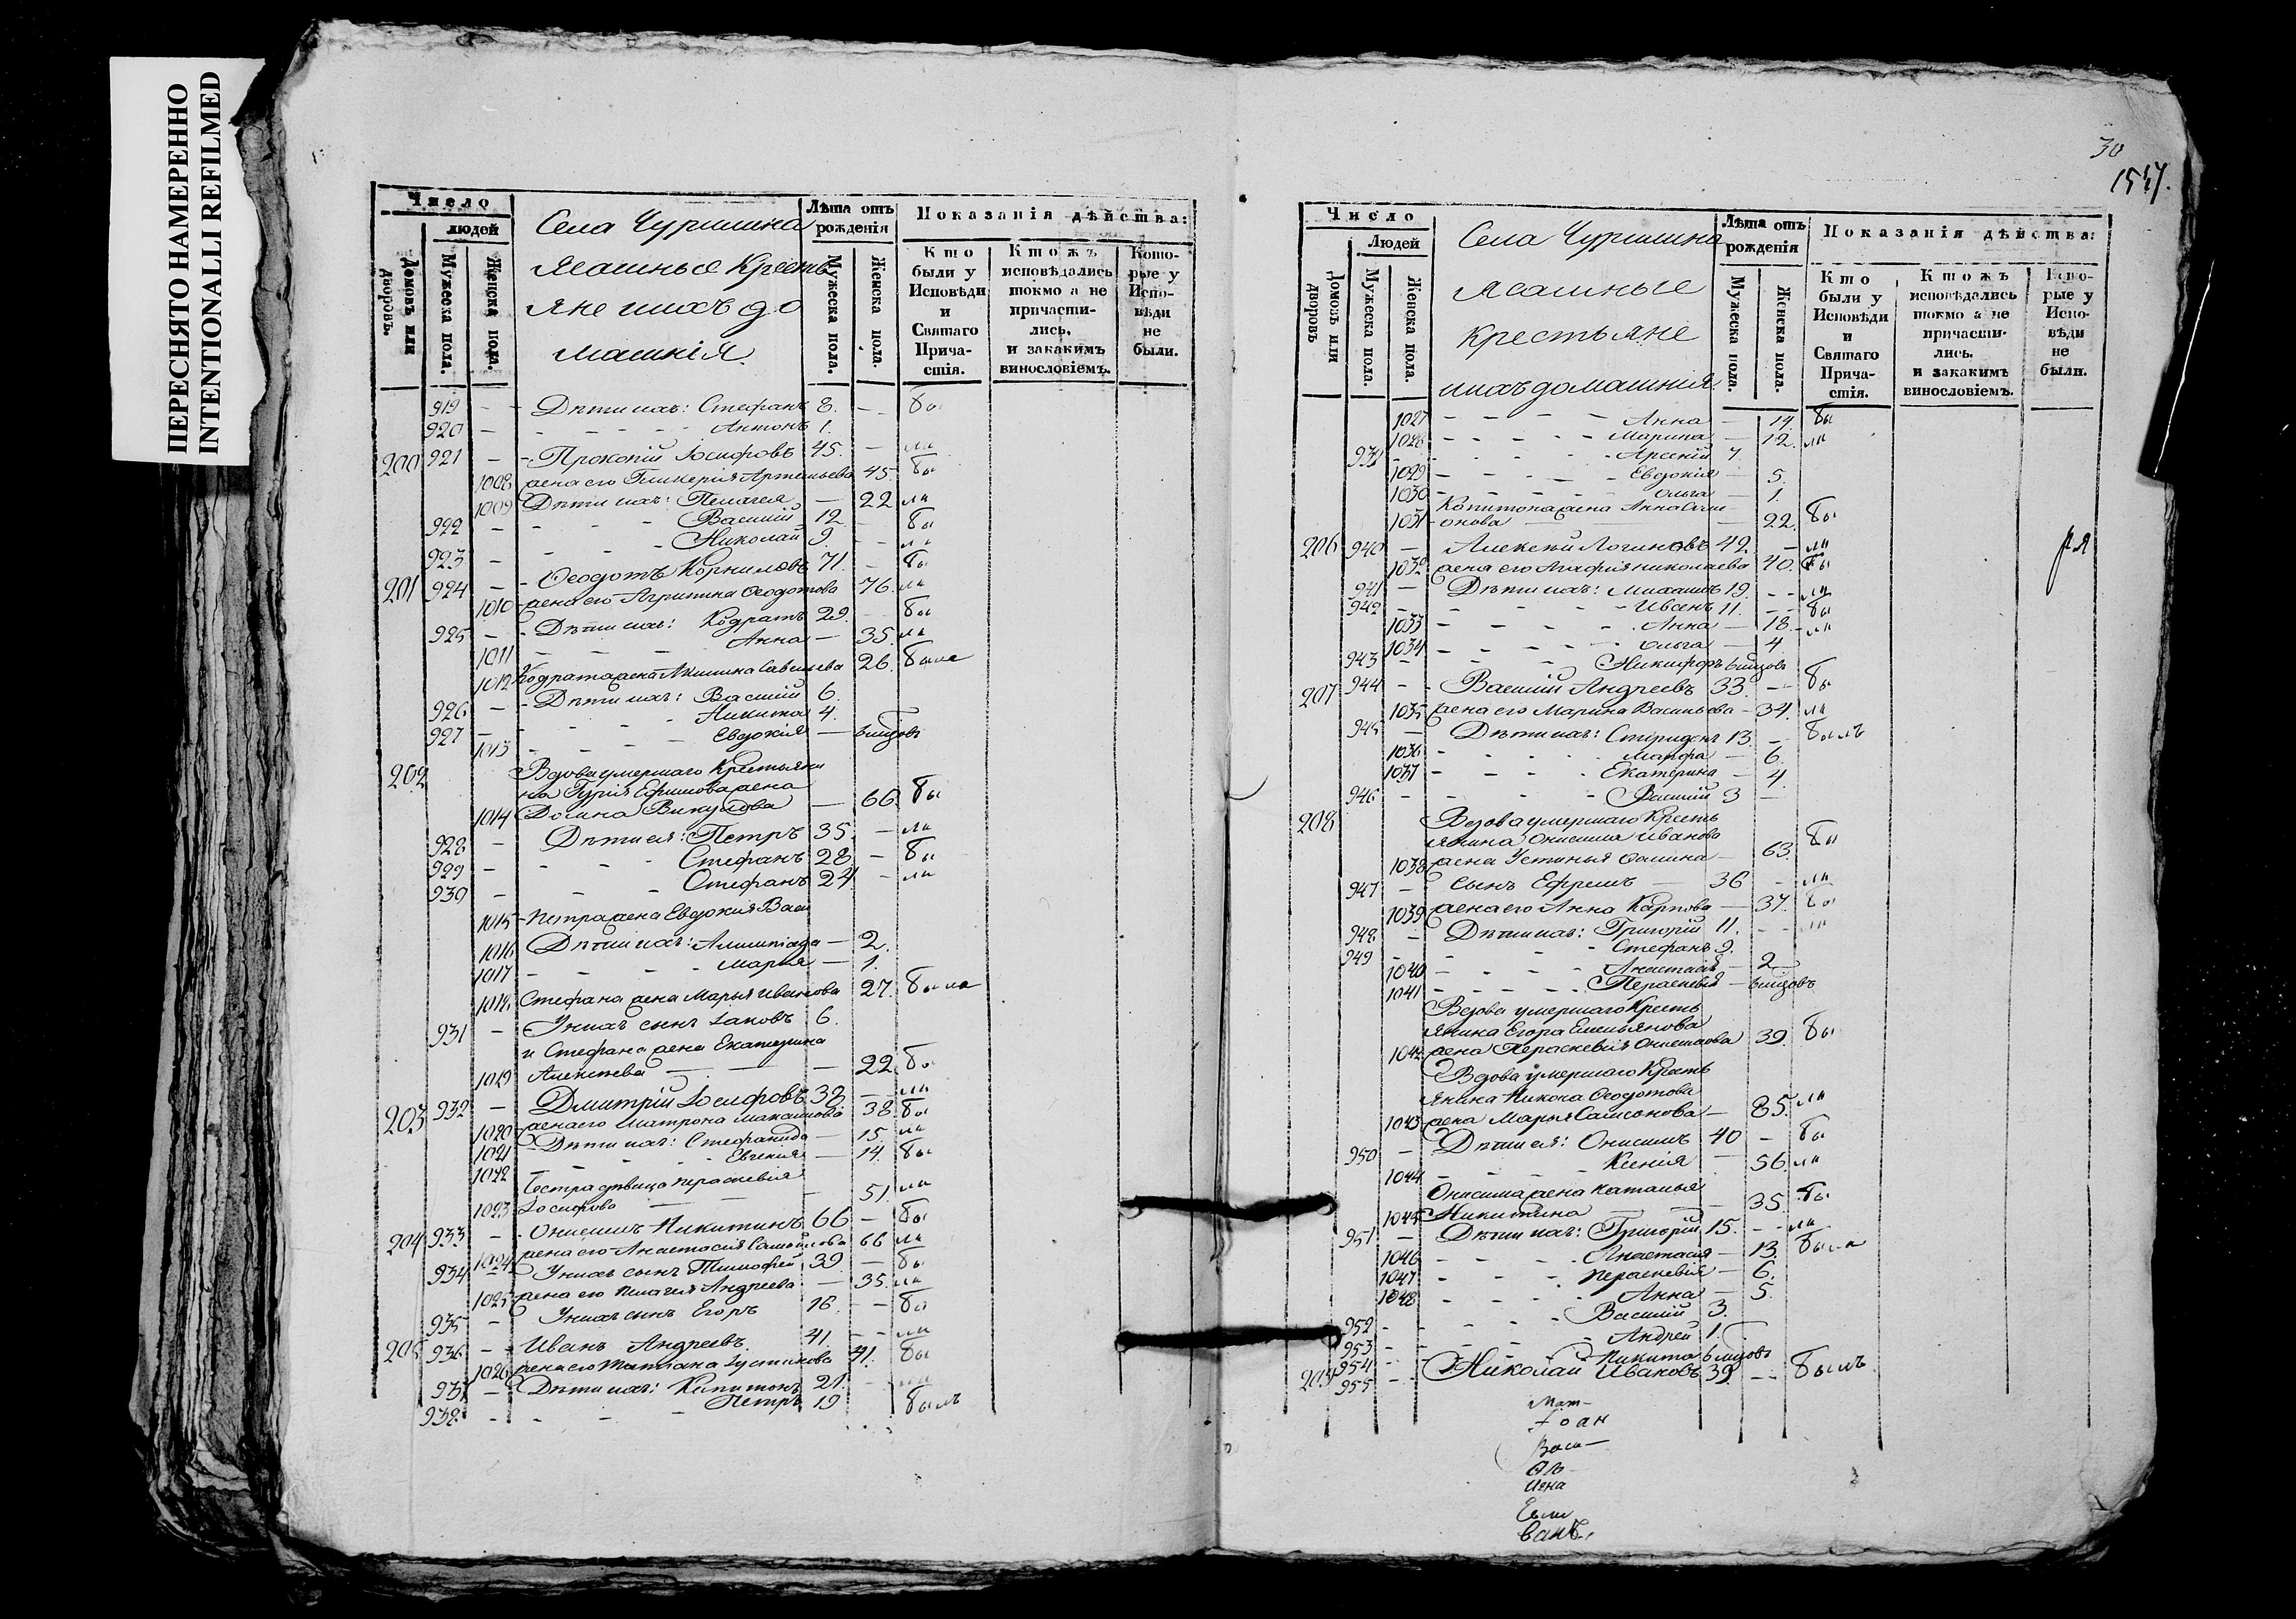 ПЕРЕСНЯТО НАМЕРЕННО
INTENTIONALLI REFILMED
Число
людей
Домовъ или дворовъ.
Мужеска пола.
Женска пола.
Села Чуришина
Ясашные Кресть
яне ихъ до
машнія
Лѣта отъ рожденія
Мужеска пола.
Женска пола.
Показанія дѣйства:
Кто были у Исповѣди и Святаго Прича-стія.
Ктожъ исповѣдались токмо а не причасти-лись, и закакимъ винословіемъ.
Кото-рые у Испо-вѣди не были.
919 - - Дѣти ихъ: Стефанъ 8. - бы
920 - Антонъ 1.
200 921 - - Прокопій Іосифовъ 45. - ли
1008 жена его Гликерія Артемьева 45. бы
1009 Дѣти ихъ: Пелагея - 22 ли
922 - Василій 12 - бы
923 - Николай 9. - ли
201 924 - - Ѳеодотъ Корниловъ 71. - бы
1010 жена его Агрипина Ѳеодотова 76. ли
925 - - Дѣти ихъ: Кодратъ 29. - бы
1011 Анна - 35. ли
1012 Кодрата жена Акилина Савельева 26. была
926 - - Дѣти ихъ: Василій 6.
927 - Никита 4.
1013 Евдокия - 6 мцовъ
202 Вдова умершаго Крестьяни
на Гурія Ефимова жена
1014 Домна Викулова - 66. бы
928 - Дѣти ея: Петръ 35. - ли
929 - Стефанъ 28. - бы
930 - Стефанъ 24 - ли
1015 - Петра жена Евдокия Васи
1016 Дѣти ихъ: Алимпіада - 2.
1017 Марья - 1.
1018 Стефана жена Марья Иванова 27. была
931 - Унихъ сынъ Іаковъ 6.
и Стефана жена Екатерина
1019 Алексѣева - 22 бы
203 932 - Дмитрій Іосифовъ 38 - ли
1020 жена его Матрона Максимова 38 бы
1021 - Дѣти ихъ: Стефанида - 15. ли
1022 Евгения - 14. бы
Сестра дѣвица Параскевія
1023 Іосифова - 51. ли
204 933 - - Онисимъ Никитинъ 66 - бы
1024 жена его Анастасія Самойлова 66 ли
934 Унихъ сынъ Тимофей 39. - бы
1025 жена его Пелагея Андреева - 35. ли
935 - Унихъ сынъ Егоръ 16. - - бы
205 936 - - Иванъ Андреевъ 41. - - ли
1026 жена его Татіана Іустинова 41. бы
937 - Дѣти ихъ: Капитонъ 21. - ли
938. - - - Петръ 19 былъ
30
Число
Людей
Домовъ или дворовъ
Мужеска пола.
Женска пола.
Села Чуришина
Ясашные
крестьяне
ихъ домашнія
Лѣта отъ рожденія
Мужеска пола.
Женска пола.
Показанія дѣйства:
Кто были у Исповѣди и Святаго Прича-стія.
Ктожъ исповѣдались токмо а не причасти-лись. и закакимъ винословіемъ.
Кото-рые у Испо-вѣди не были.
1027 - - - - Анна - 14. бы
1028 - - - - Марина - 12. ли
939 - Арсеній 7
1029 - Евдокія - 5.
1030 - Ольга - 1.
Капитона жена Анна Сими
1031 онова - 22. бы
206 940 - Алексѣй Логиновъ 42. - ли
1032 жена его Агафія Николаева 40. бы
941 - Дѣти ихъ: Михаилъ 19. - - ли
942 - Иванъ 11. - - бы
1033 - Анна - 18. - ли
1034 - Ольга - 4
943 - Никифоръ 6 мцовъ
207 944 - - Василій Андреевъ 33. - - бы
1035 жена его Марина Васильева - 34. ли
945 - Дѣти ихъ: Спиридонъ 13. - былъ
1036 - Мавра - 6.
1037 - Екатерина - 4.
946 - Василій 3 -
208 Вдова умершаго Кресть
янина Онисима Иванова
1038 жена Устинья Фомина - 63. бы
947 - Сынъ Ефремъ - 36 - ли
1039 жена его Анна Карпова - 37. бы
948 - Дѣти ихъ: Григорій 11. - - ли
949 - Стефанъ 9.
1040 - Анастасія - 2
1041 - Параскевія - 6 мцовъ
Вдова умершаго Кресть
янина Егора Емельянова
1042 жена Параскевія 39. бы
Вдова умершаго Кресть
янина Никона Ѳеодотова
1043 жена Марья Самсонова - 85. ли
950 - Дѣти ея: Онисимъ 40 - бы
1044 - Ксенія - 56 ли
Онисима жена Наталья
1045 Никитина - 35. бы
951 - Дѣти ихъ: Григорій 15. - - ли
1046 - Анастасія - 13. была
1047 - Параскевія - 6.
1048 - Анна - 5.
952 - Василій 3.
953 - Андрей 1.
954 - Никита 6 мцовъ
209 955 - - Николай Ивановъ 39. - - былъ
ря
Мат-
Іоан
Васи-
Иена
Евли
ванъ.